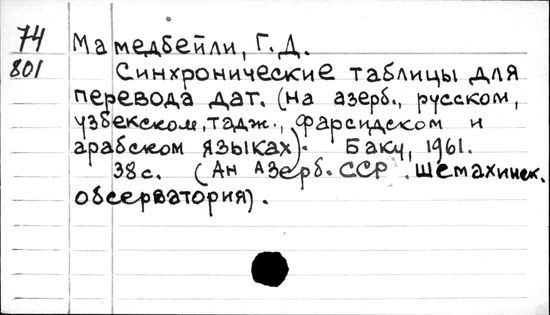 74 Мамедбейли, Г. Д.
801 Синхронические таблицы для
перевода дат. (на азерб., русском,
узбекском, тадж., фарсидском и
арабском языках). Баку, 1961.
38с. (Ан Азерб. ССР. Шемахинск.
обсерватория).